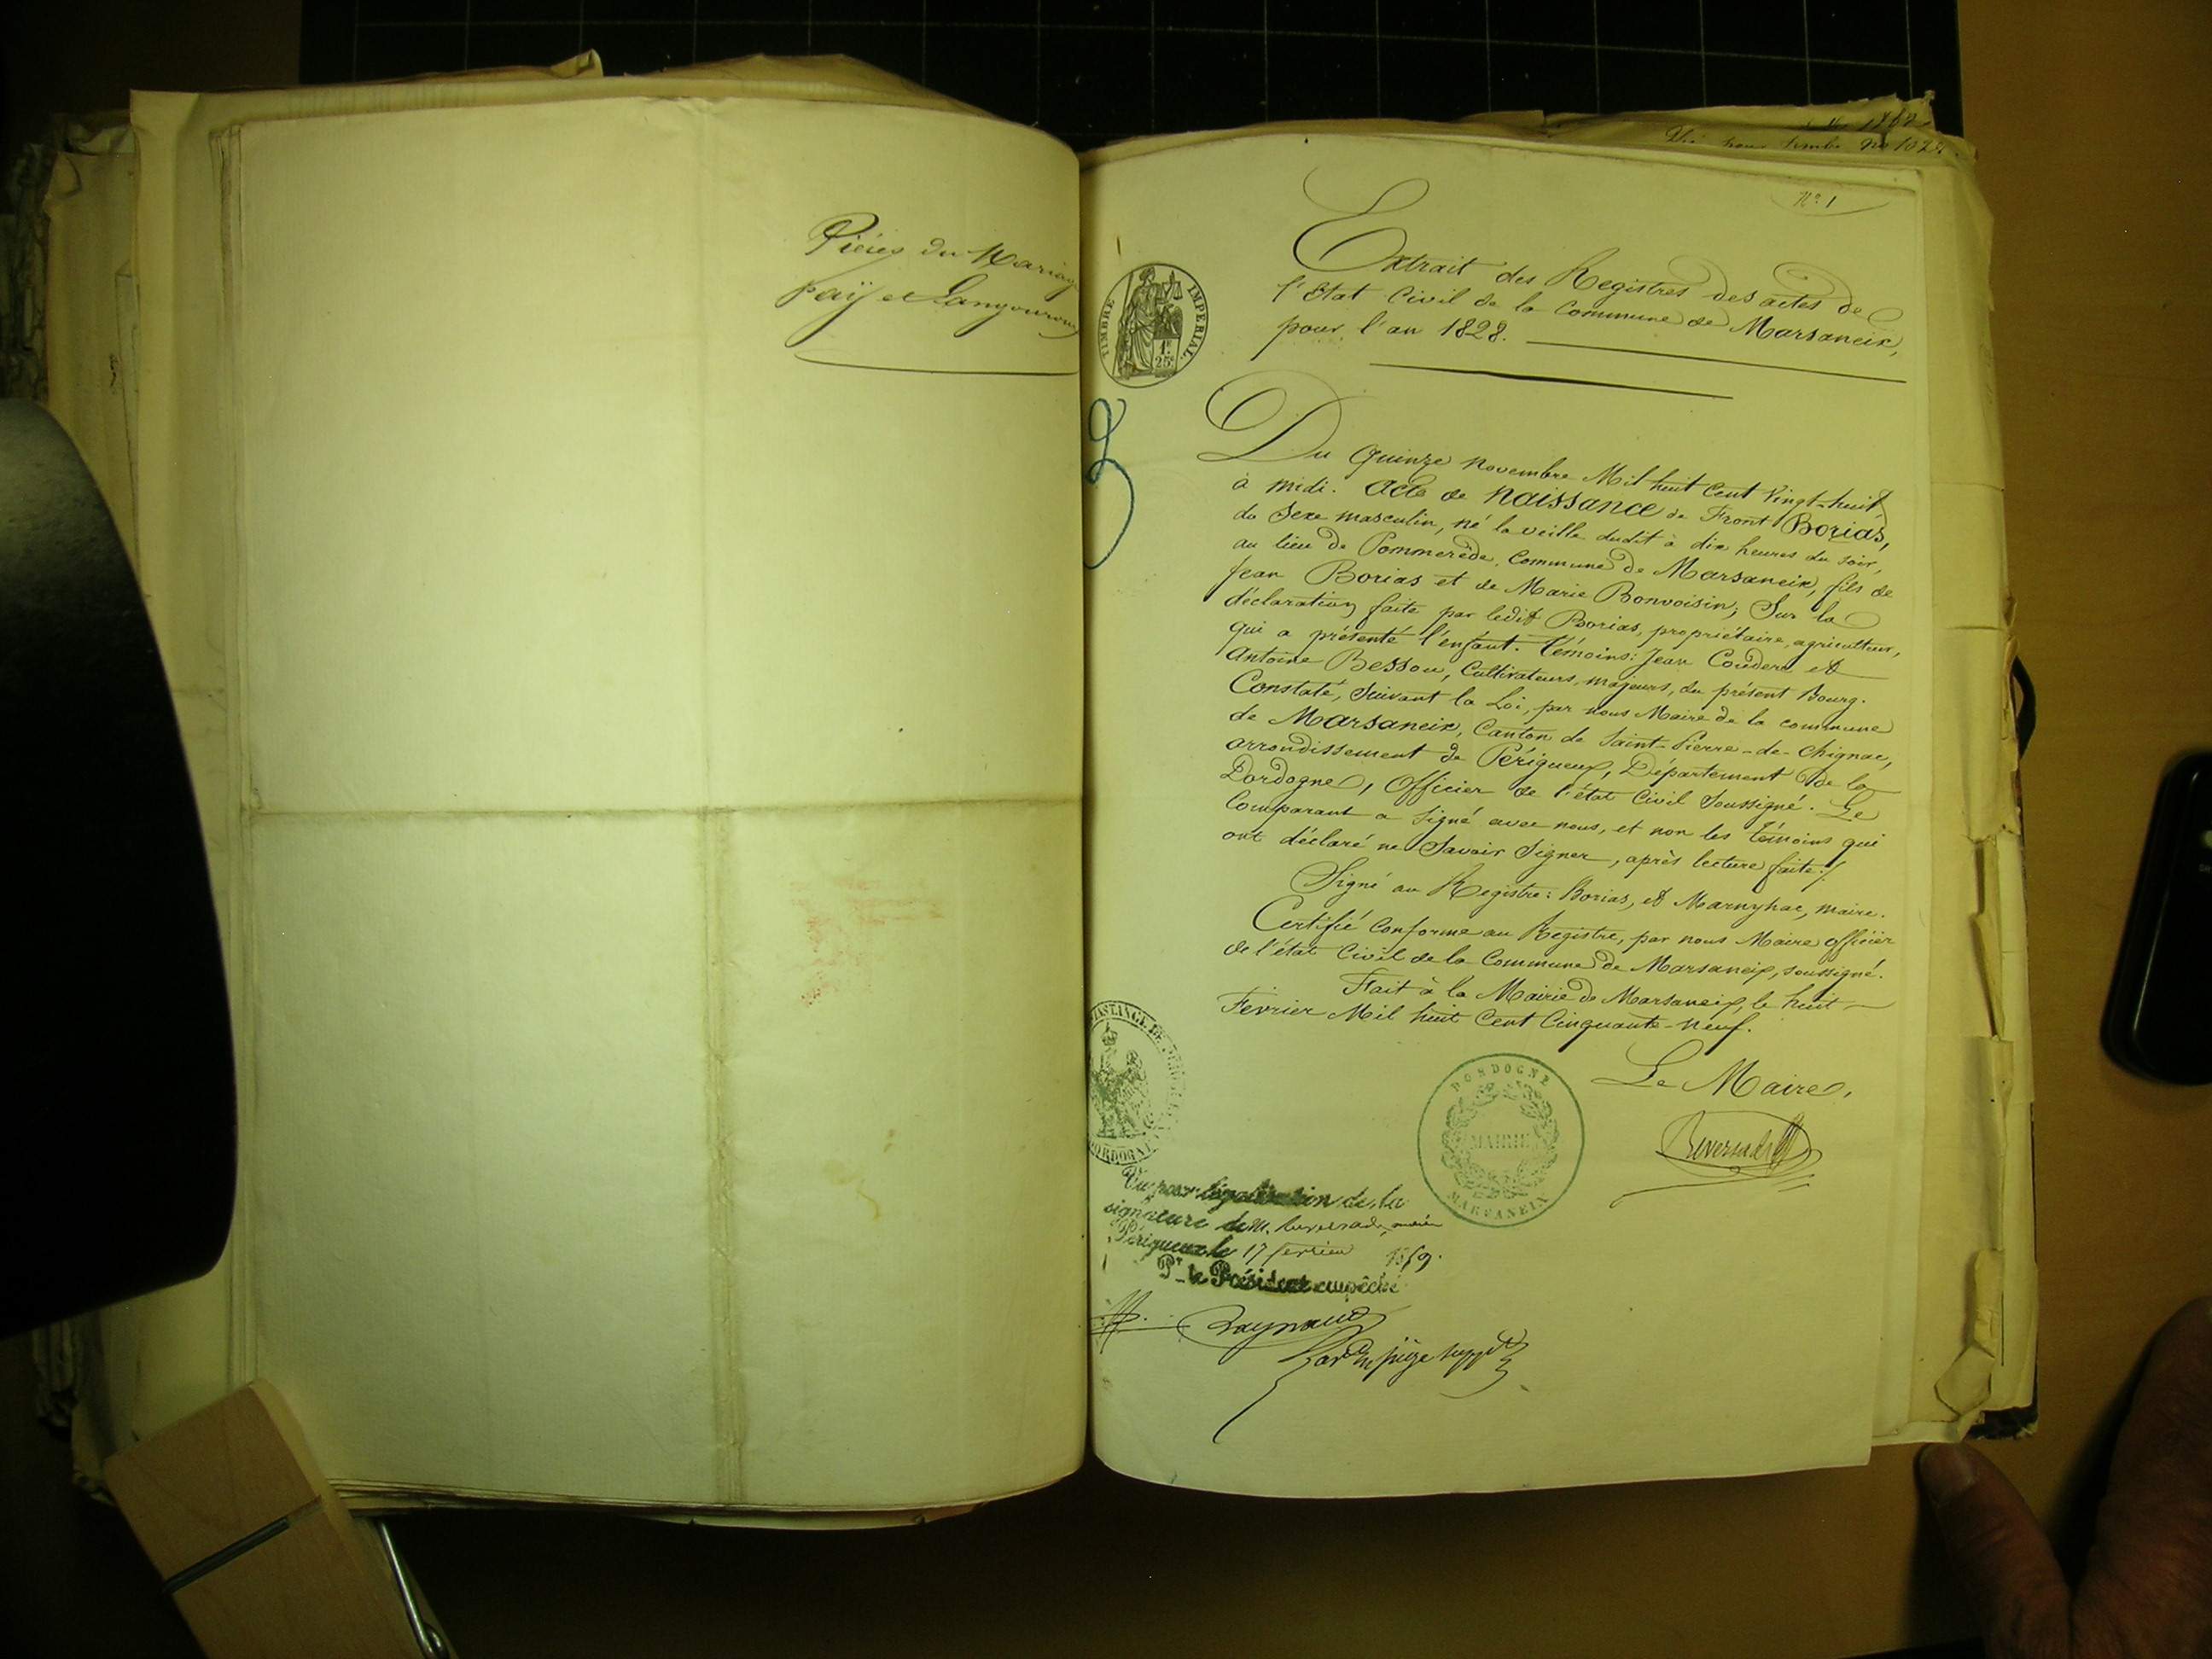 Pièces du Mariage
Faÿ et Langouroux
Nº 1
TIMBRE IMPERIAL
1f.
25c
Extrait des Registres des actes de
l'État Civil de la Commune de Marsaneix,
pour l'an 1828.
Du Quinze Novembre Mil huit Cent Vingt-huit,
à midi. Acte de Naissance de Front Borias,
du Sexe masculin, né la veille dudit à dix heures du soir,
au lieu de Pommerède, Commune de Marsaneix, fils de
Jean Borias et de Marie Bonvoisin; Sur la
déclaration faite par ledit Borias, propriétaire, agriculteur,
qui a présenté l'enfant. Témoins: Jean Couderc et
Antoine Bessou, Cultivateurs, majeurs, du présent Bourg.
Constaté, Suivant la Loi, par nous Maire de la commune
de Marsaneix, Canton de Saint-Pierre-de-Chignac,
arrondissement de Périgueux, Département de la
Dordogne, Officier de l'état Civil Soussigné. Le
Comparant a Signé avec nous, et non les témoins qui
ont déclaré ne Savoir Signer, après lecture faite./.
Signé au Registre: Borias, et Marnyhac, maire.
Certifié Conforme au Registre, par nous Maire officier
de l'état Civil de la Commune de Marsaneix, soussigné.
Fait à la Mairie de Marsaneix, le huit
Février Mil huit Cent Cinquante-Neuf.
Le Maire,
DORDOGNE
MAIRIE
MARSANEIX
DORDOGNE
Vu pour légalisation de la
signature de M.
Périgueux le 17 février 1859.
Pr. le Président empêché
Raynaud
juge suppt